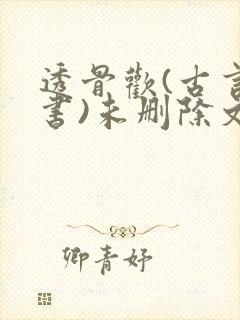 透骨歡(古言
書)未刪除文
卿青妤